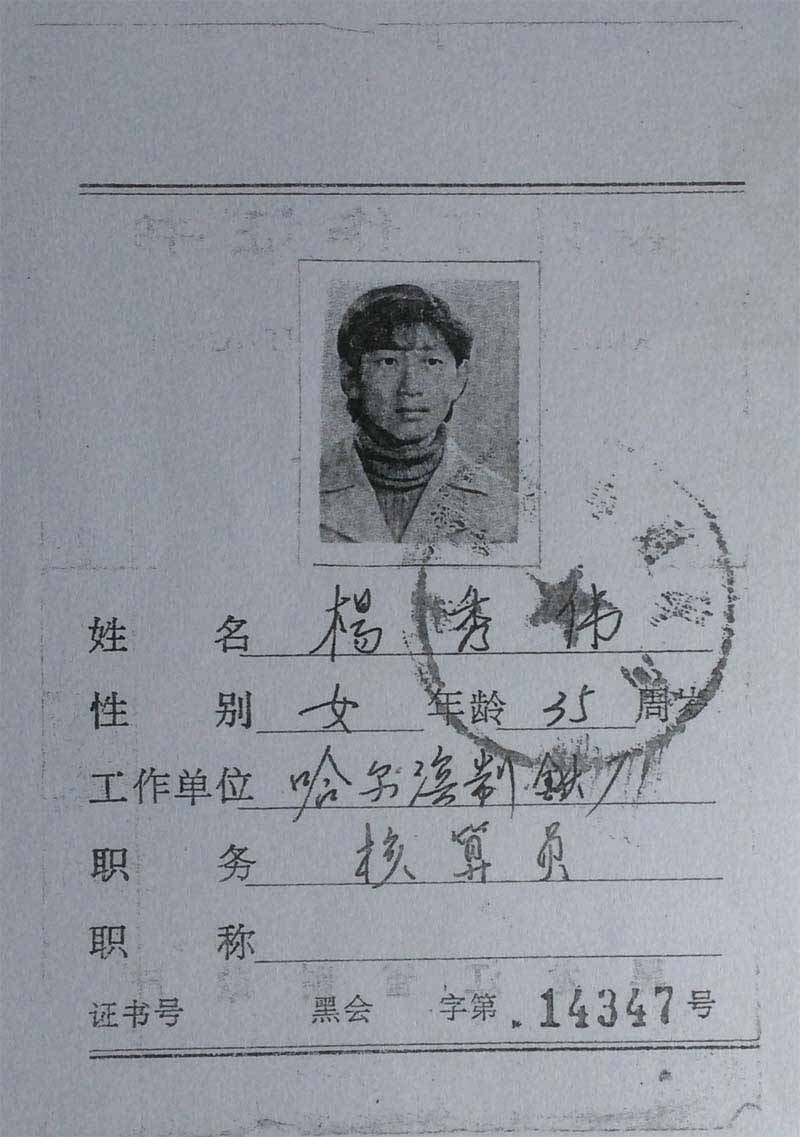 姓名 楊秀伟
性别 女 年龄 35 周岁
工作单位 哈尔滨制鉄厂
职务 核算员
职称
证书号 黑会 字第 .14347 号